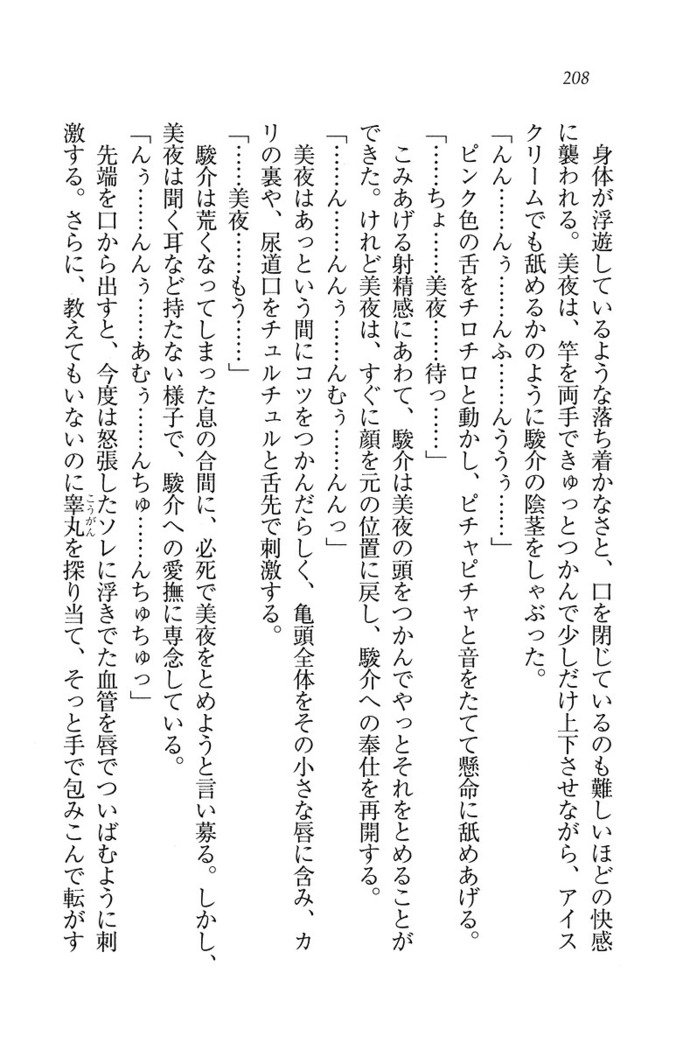 208
身体が浮遊しているような落ち着かなさと、口を閉じているのも難しいほどの快感
に襲われる。美夜は、竿を両手できゅっとつかんで少しだけ上下させながら、アイス
クリームでも舐めるかのように駿介の陰茎をしゃぶった。
「んん……んぅ……んふ……んううぅ……」
ピンク色の舌をチロチロと動かし、ピチャピチャと音をたてて懸命に舐めあげる。
「……ちょ……美夜……待っ……」
こみあげる射精感にあわて、駿介は美夜の頭をつかんでやっとそれをとめることが
できた。けれど美夜は、すぐに顔を元の位置に戻し、駿介への奉仕を再開する。
「……ん……んんぅ……んむぅ……んんっ」
美夜はあっという間にコツをつかんだらしく、亀頭全体をその小さな唇に含み、カ
リの裏や、尿道口をチュルチュルと舌先で刺激する。
「……美夜……もう……」
駿介は荒くなってしまった息の合間に、必死で美夜をとめようと言い募る。しかし、
美夜は聞く耳など持たない様子で、駿介への愛撫に専念している。
「んぅ……んんぅ……あむぅ……んちゅ……んちゅちゅっ」
先端を口から出すと、今度は怒張したソレに浮きでた血管を唇でついばむように刺
激する。さらに、教えてもいないのに睾丸を探り当て、そっと手で包みこんで転がす
こうがん